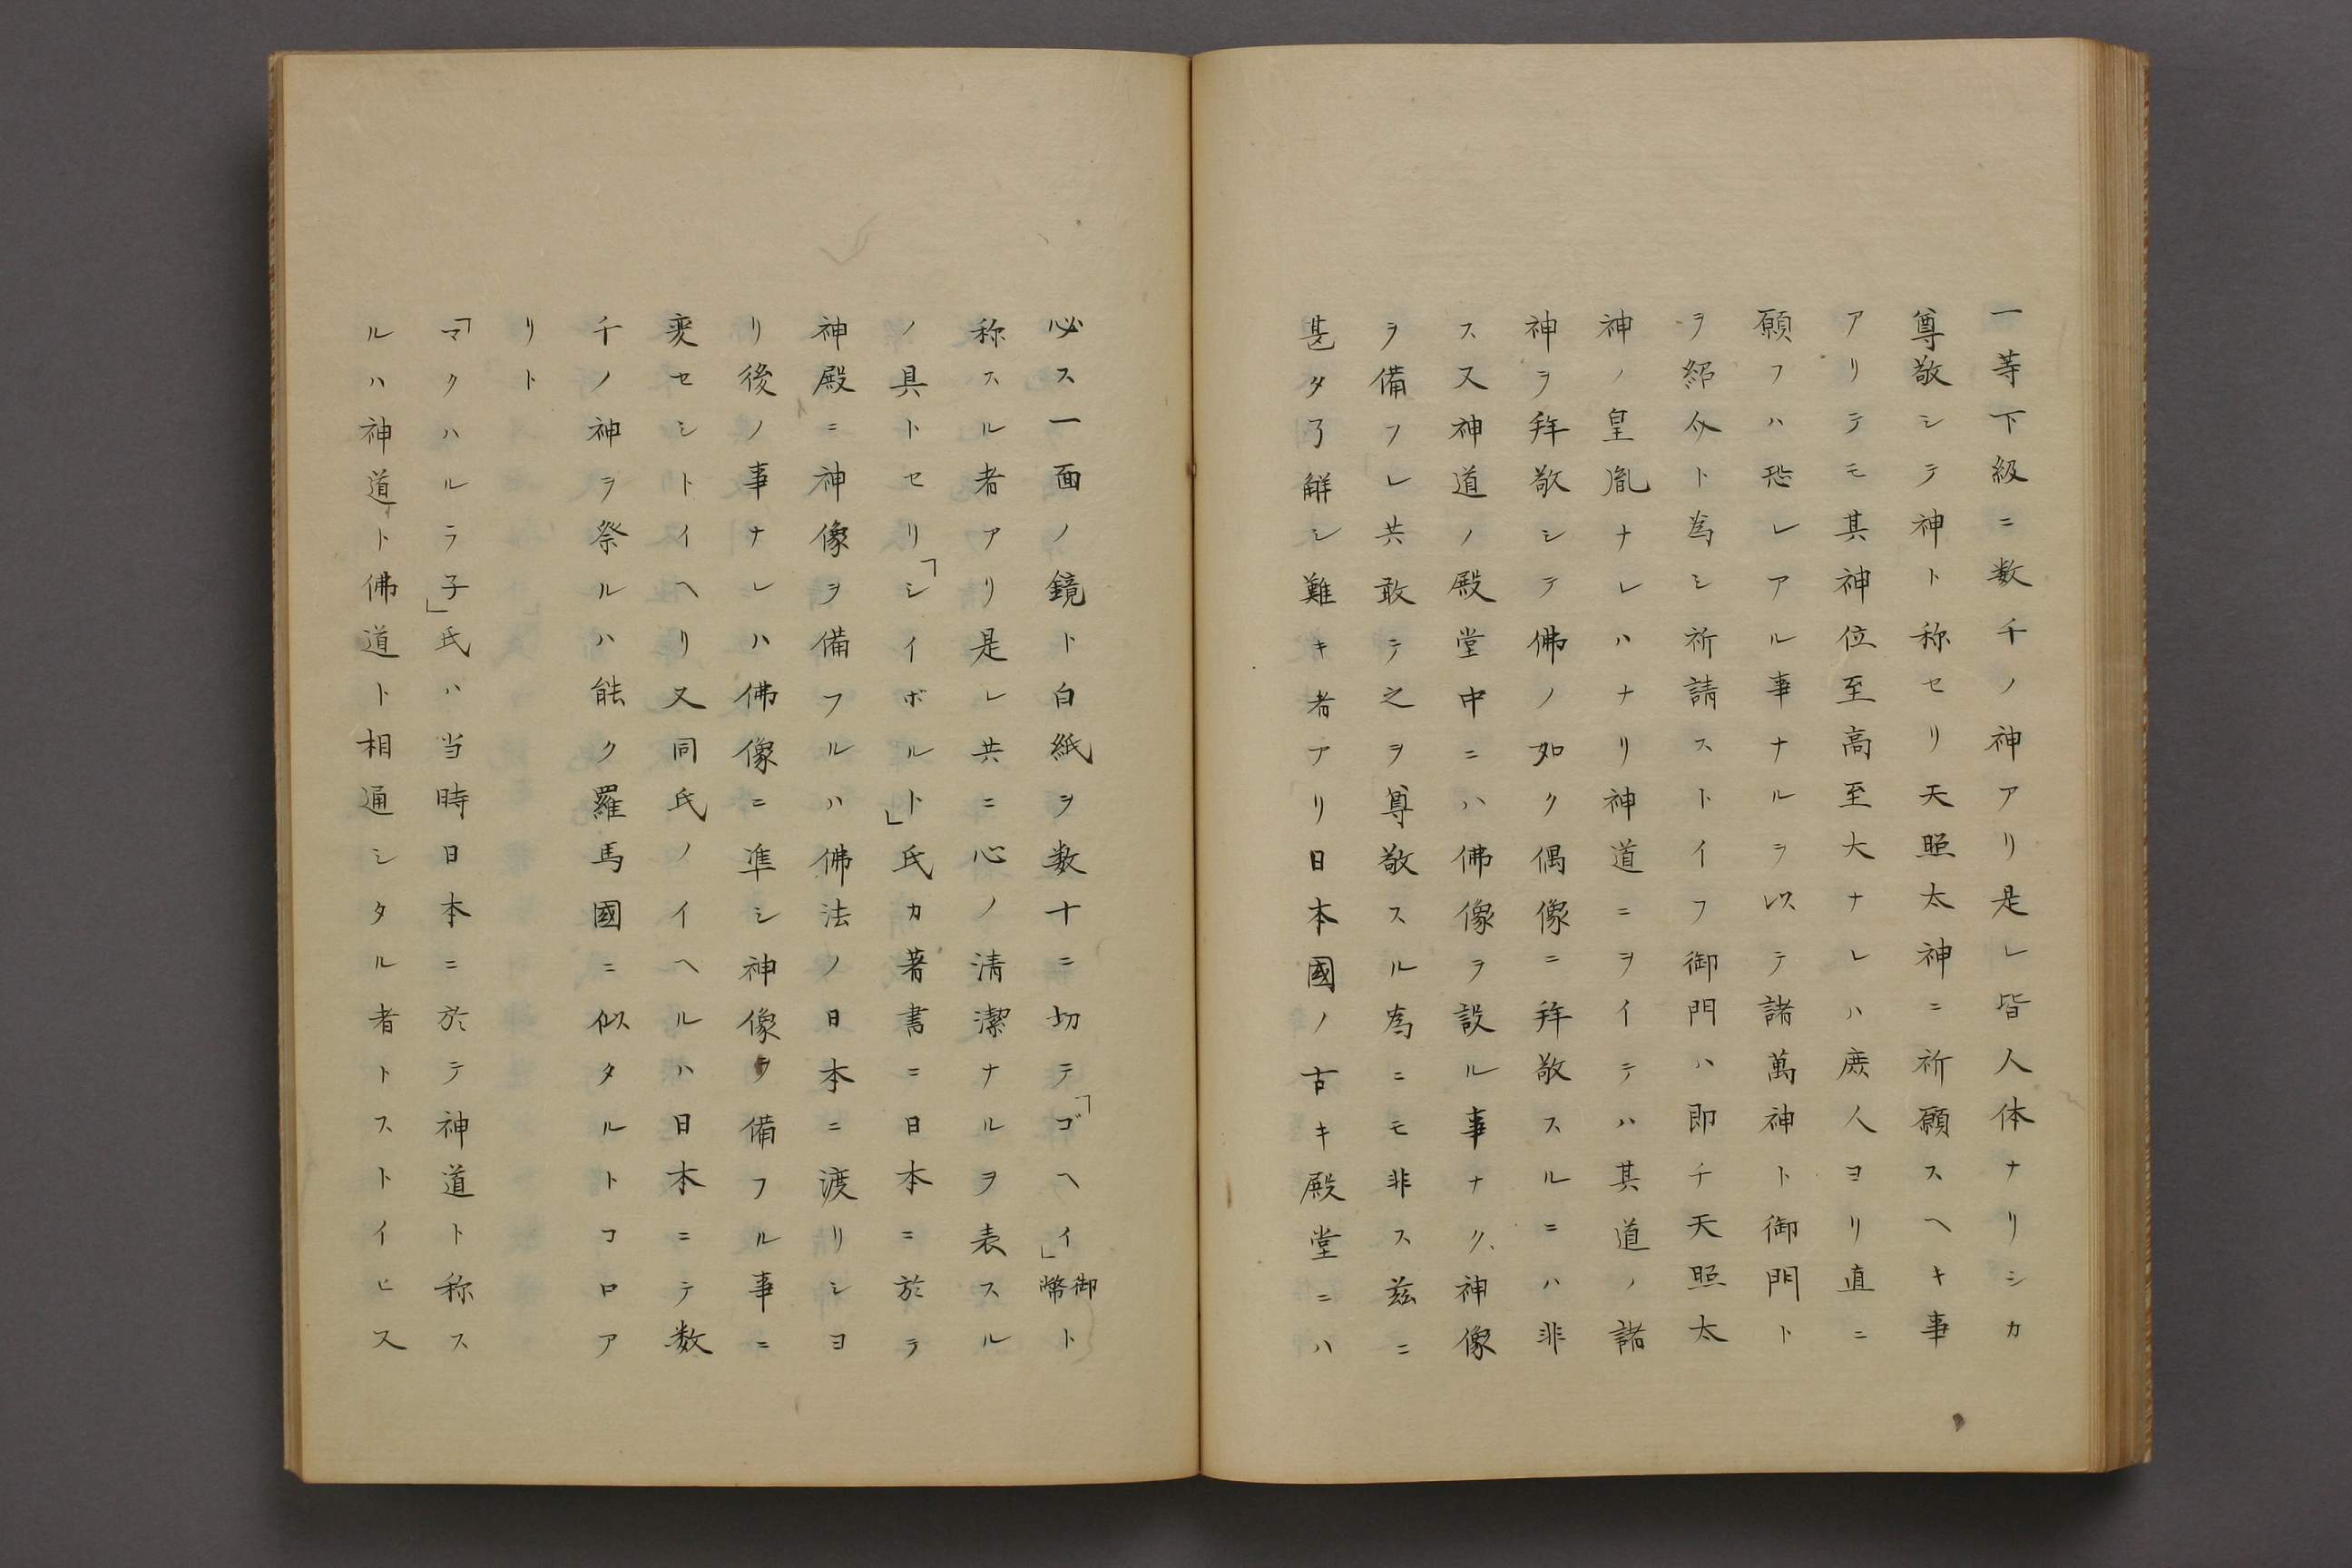 一等下級ニ数千ノ神アリ是レ皆人体ナリシカ
尊敬シテ神ト称セリ天照太神ニ祈願スヘキ事
アリテモ其神位至高至大ナレハ庶人ヨリ直ニ
願フハ恐レアル事ナルヲ以テ諸萬神ト御門ト
ヲ紹介ト為シ祈請ストイフ御門ハ即チ天照太
神ノ皇胤ナレハナリ神道ニヲイテハ其道ノ諸
神ヲ拜敬シテ佛ノ如ク偶像ニ拜敬スルニハ非
ス又神道ノ殿堂中ニハ佛像ヲ設ル事ナク、神像
ヲ備フレ共敢テ之ヲ尊敬スル為ニモ非ス茲ニ
甚タ了解シ難キ者アリ日本國ノ古キ殿堂ニハ
必ス一面ノ鏡ト白紙ヲ数十ニ切テ「ゴヘイ」御幣ト
称スル者アリ是レ共ニ心ノ清潔ナルヲ表スル
ノ具トセリ「シイボルト」氏カ著書ニ日本ニ於テ
神殿ニ神像ヲ備フルハ佛法ノ日本ニ渡リシヨ
リ後ノ事ナレハ佛像ニ準シ神像ヲ備フル事ニ
変セシトイヘリ又同氏ノイヘルハ日本ニテ数
千ノ神ヲ祭ルハ能ク羅馬國ニ似タルトコロア
リト
「マクハルラ子」氏ハ当時日本ニ於テ神道ト称ス
ルハ神道ト佛道ト相通シタル者トストイヒ又